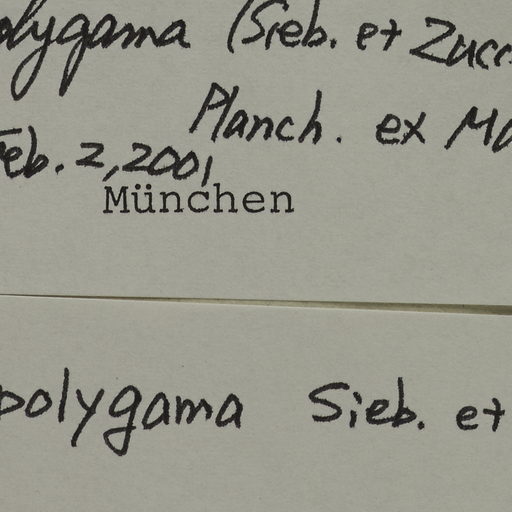 olygama (Sieb. et Zucc
Planch. ex Ma
Feb. 2, 2001
München
polygama Sieb. et